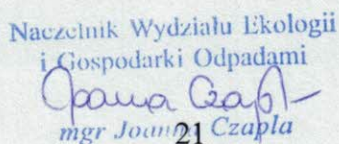 Naczelnik Wydziału Ekologii
i Gospodarki Odpadami
Joanna Czapla
mgr Joanna Czapla
21